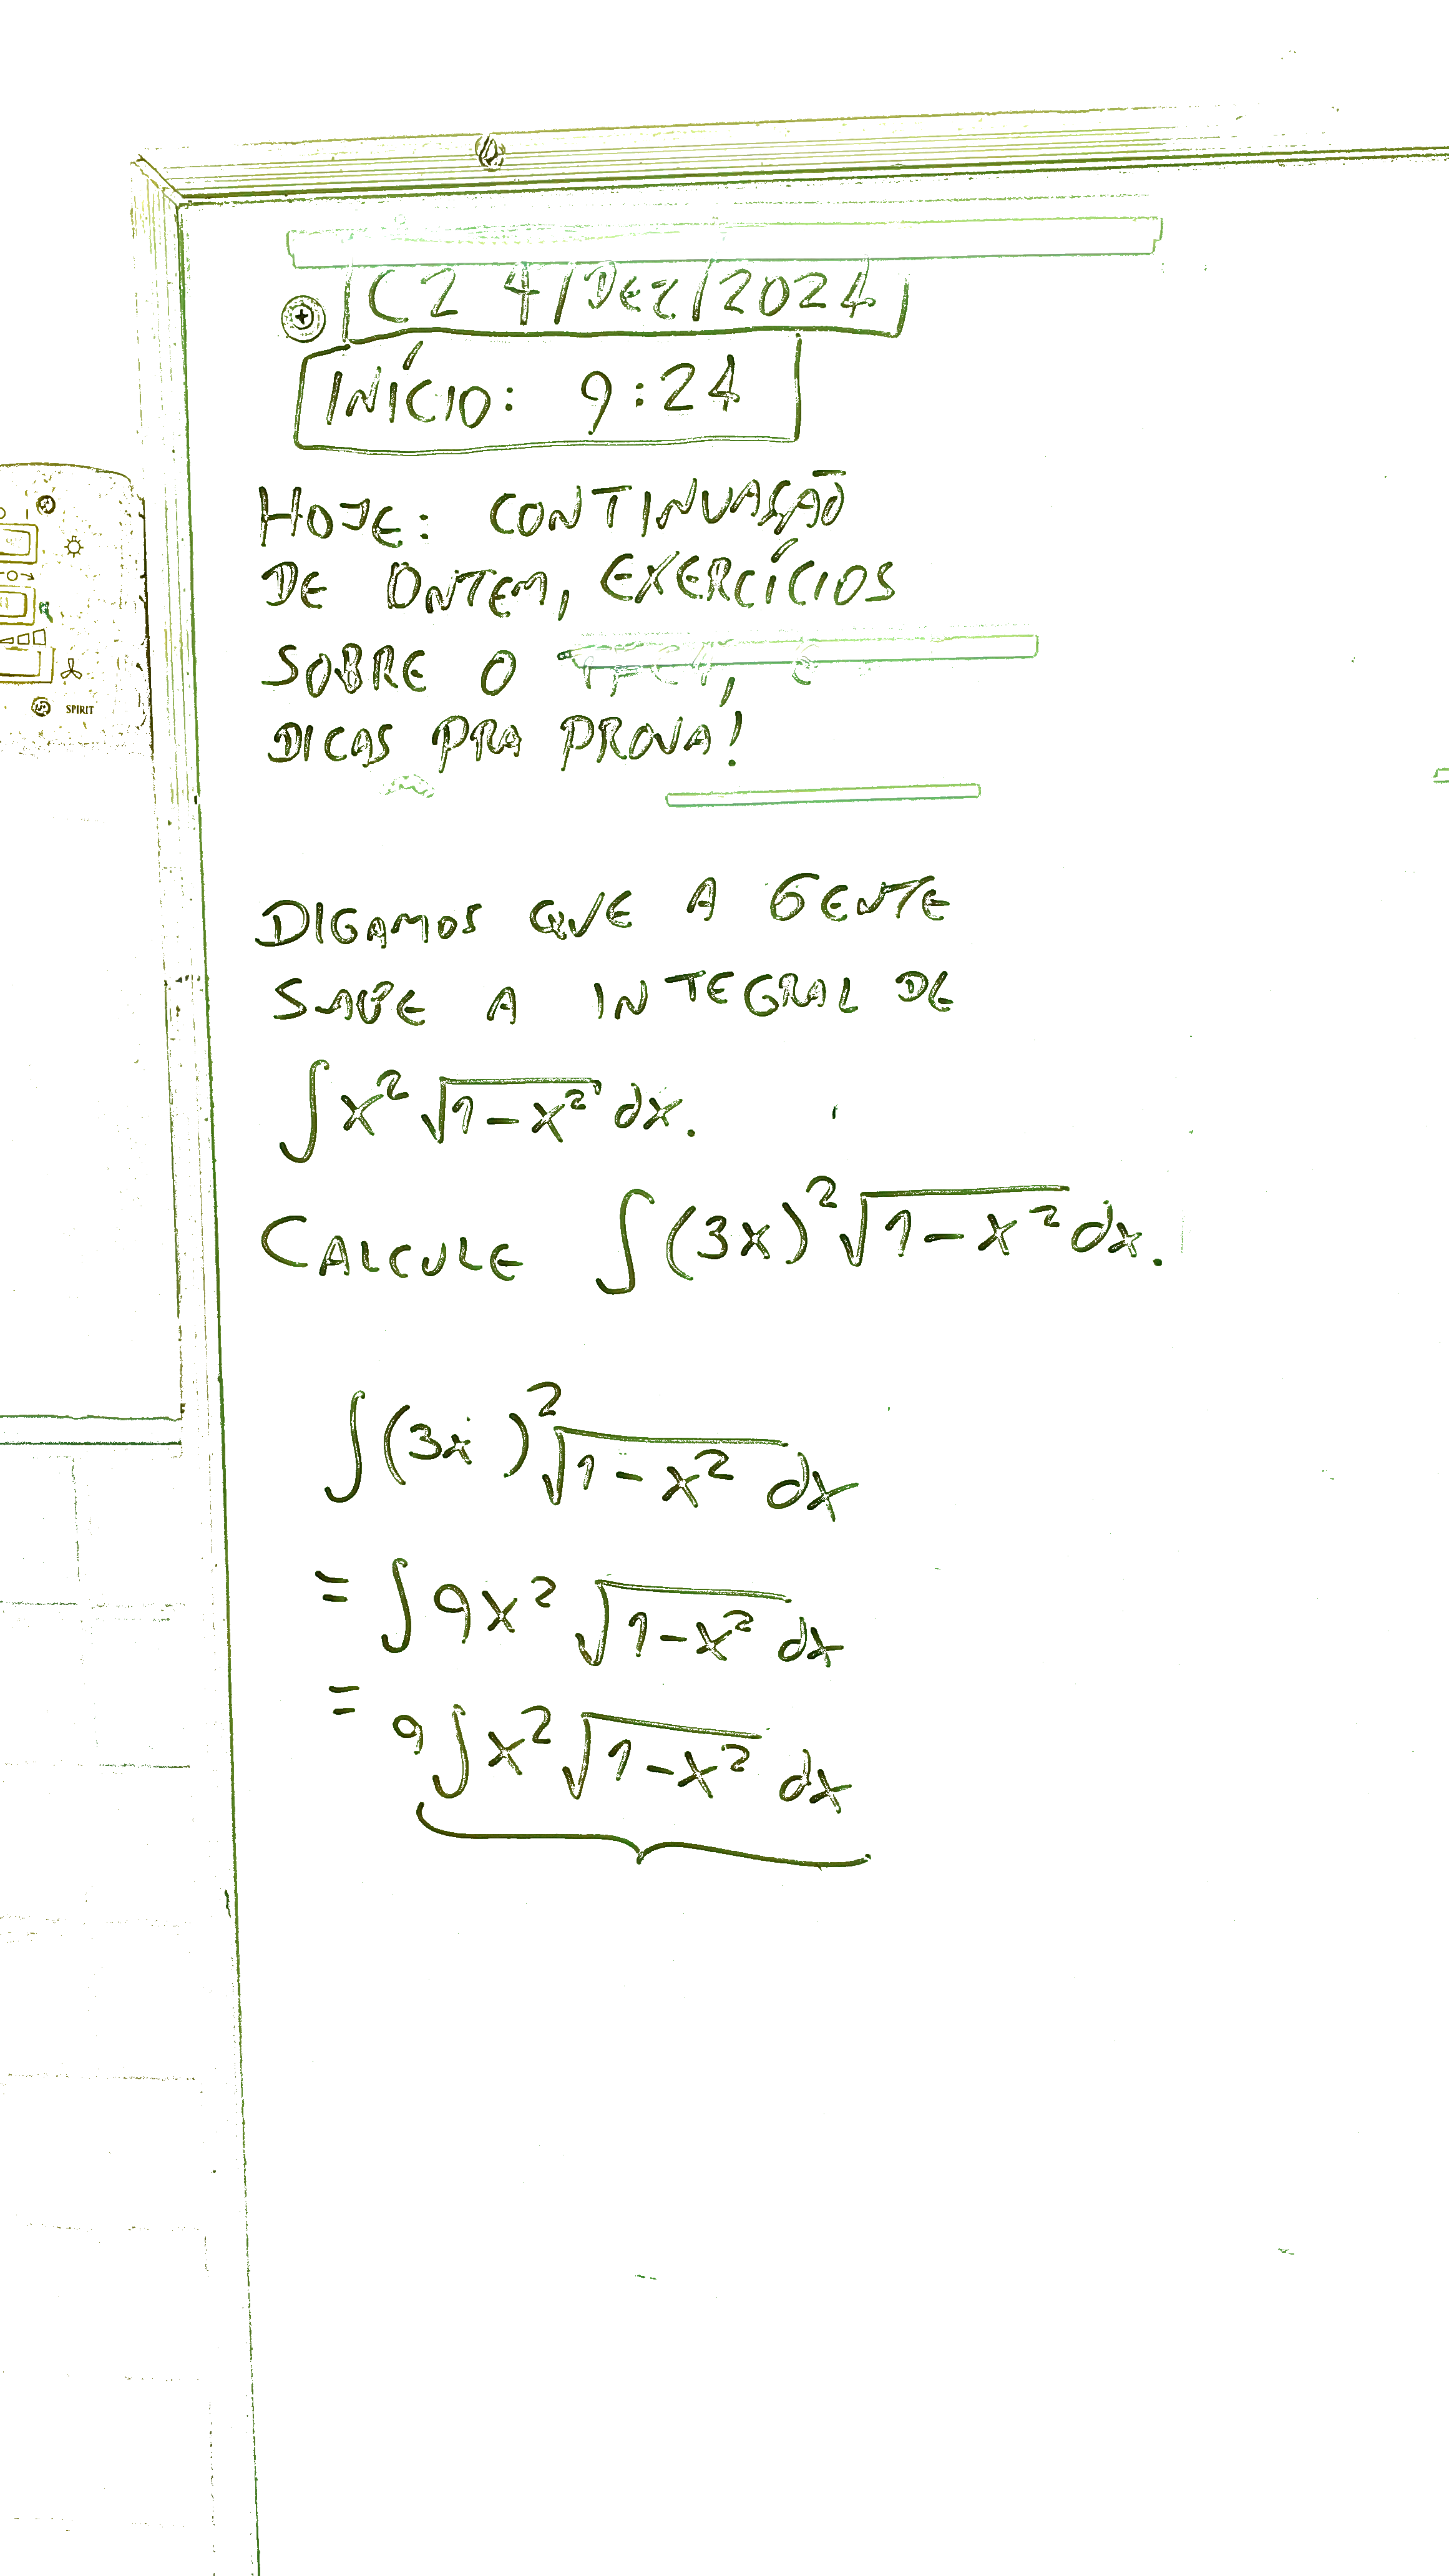 C2 4/DEZ/2024
INÍCIO: 9:24
HOJE: CONTINUAÇÃO
DE ONTEM, EXERCÍCIOS
SOBRE O
DICAS PRA PROVA!
DIGAMOS QUE A GENTE
SABE A INTEGRAL DE
∫x²√(1-x²) dx.
CALCULE ∫(3x)²√(1-x²) dx.
∫(3x)²√(1-x²) dx
= ∫9x²√(1-x²) dx
= 9∫x²√(1-x²) dx
SPIRIT